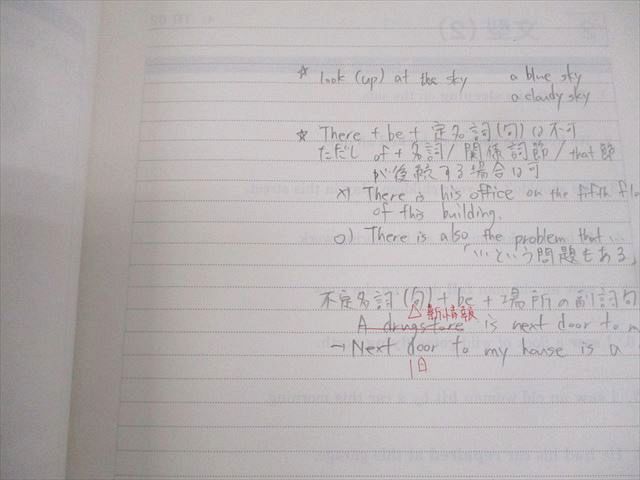 文型(2)
☆ look (up) at the sky a blue sky
a cloudy sky
☆ There + be + 定名詞(句)は不可
ただし of+名詞/関係詞節/that節
が後続する場合は可
×) There is his office on the fifth flo
of this building.
○) There is also the problem that...
「…という問題もある」
不定名詞(句)+be+場所の副詞句
△新情報
A drugstore is next door to m
→Next door to my house is a
旧
saw an old woman hit by a car this morning.
had his car repaired at this garage.